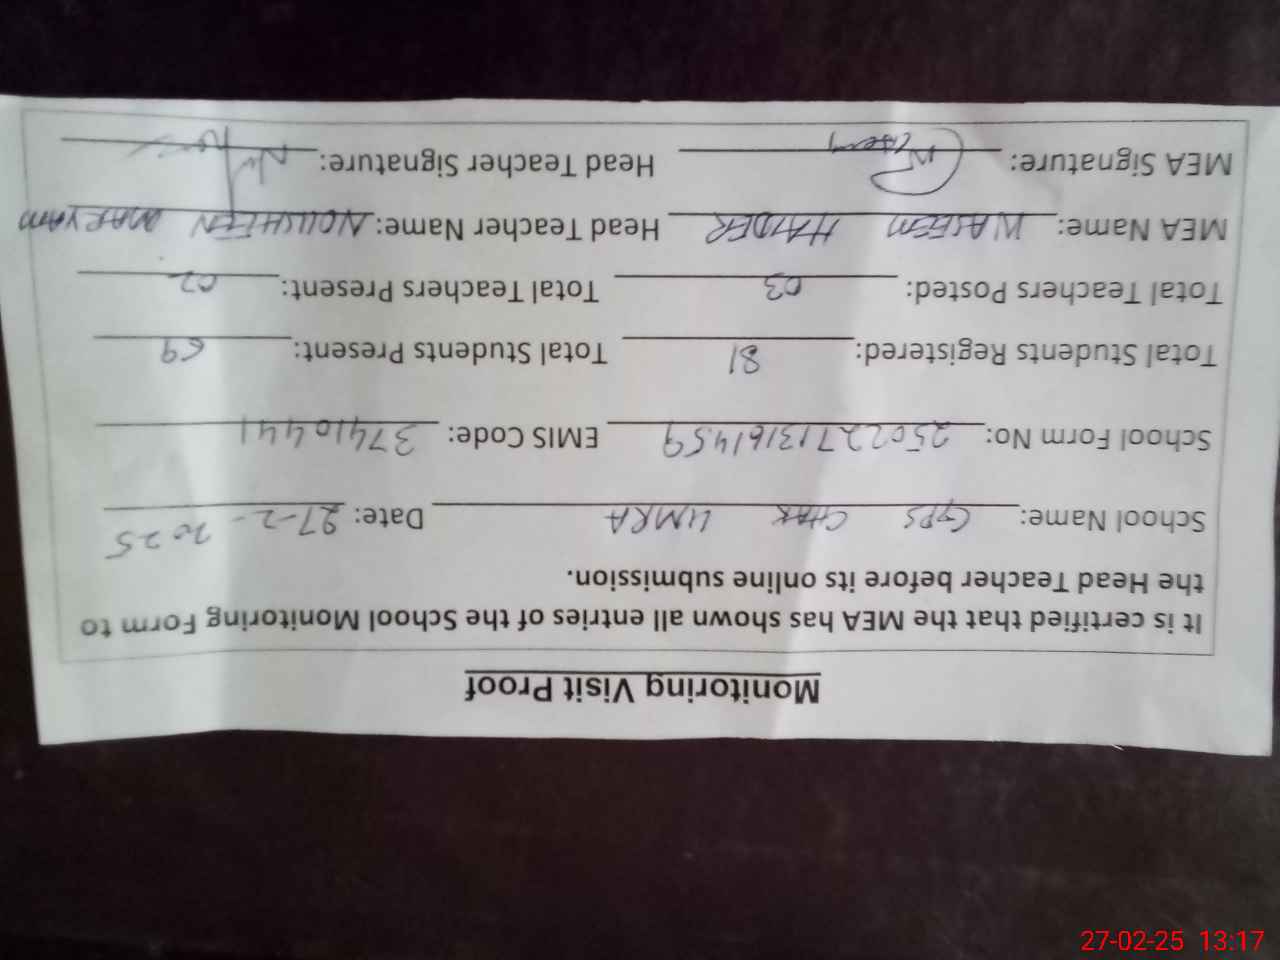 Monitoring Visit Proof
It is certified that the MEA has shown all entries of the School Monitoring Form to
the Head Teacher before its online submission.
School Name: GPS CHAK UMRA Date: 27-2-2025
School Form No: 25022713161459 EMIS Code: 37410441
Total Students Registered: 81 Total Students Present: 69
Total Teachers Posted: 03 Total Teachers Present: 02
MEA Name: WASEEM HAIDER Head Teacher Name: NOUSHEEN MARYAM
MEA Signature: Head Teacher Signature:
27-02-25 13:17